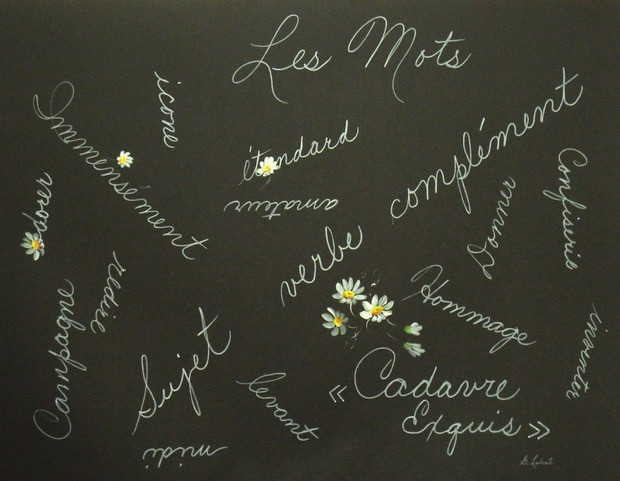 Les Mots
icone
Immensément
étendard
complément
amateur
Confiserie
Donner
verbe
redire
Hommage
Campagne
Sujet
inventer
levant
« Cadavre
Exquis »
midi